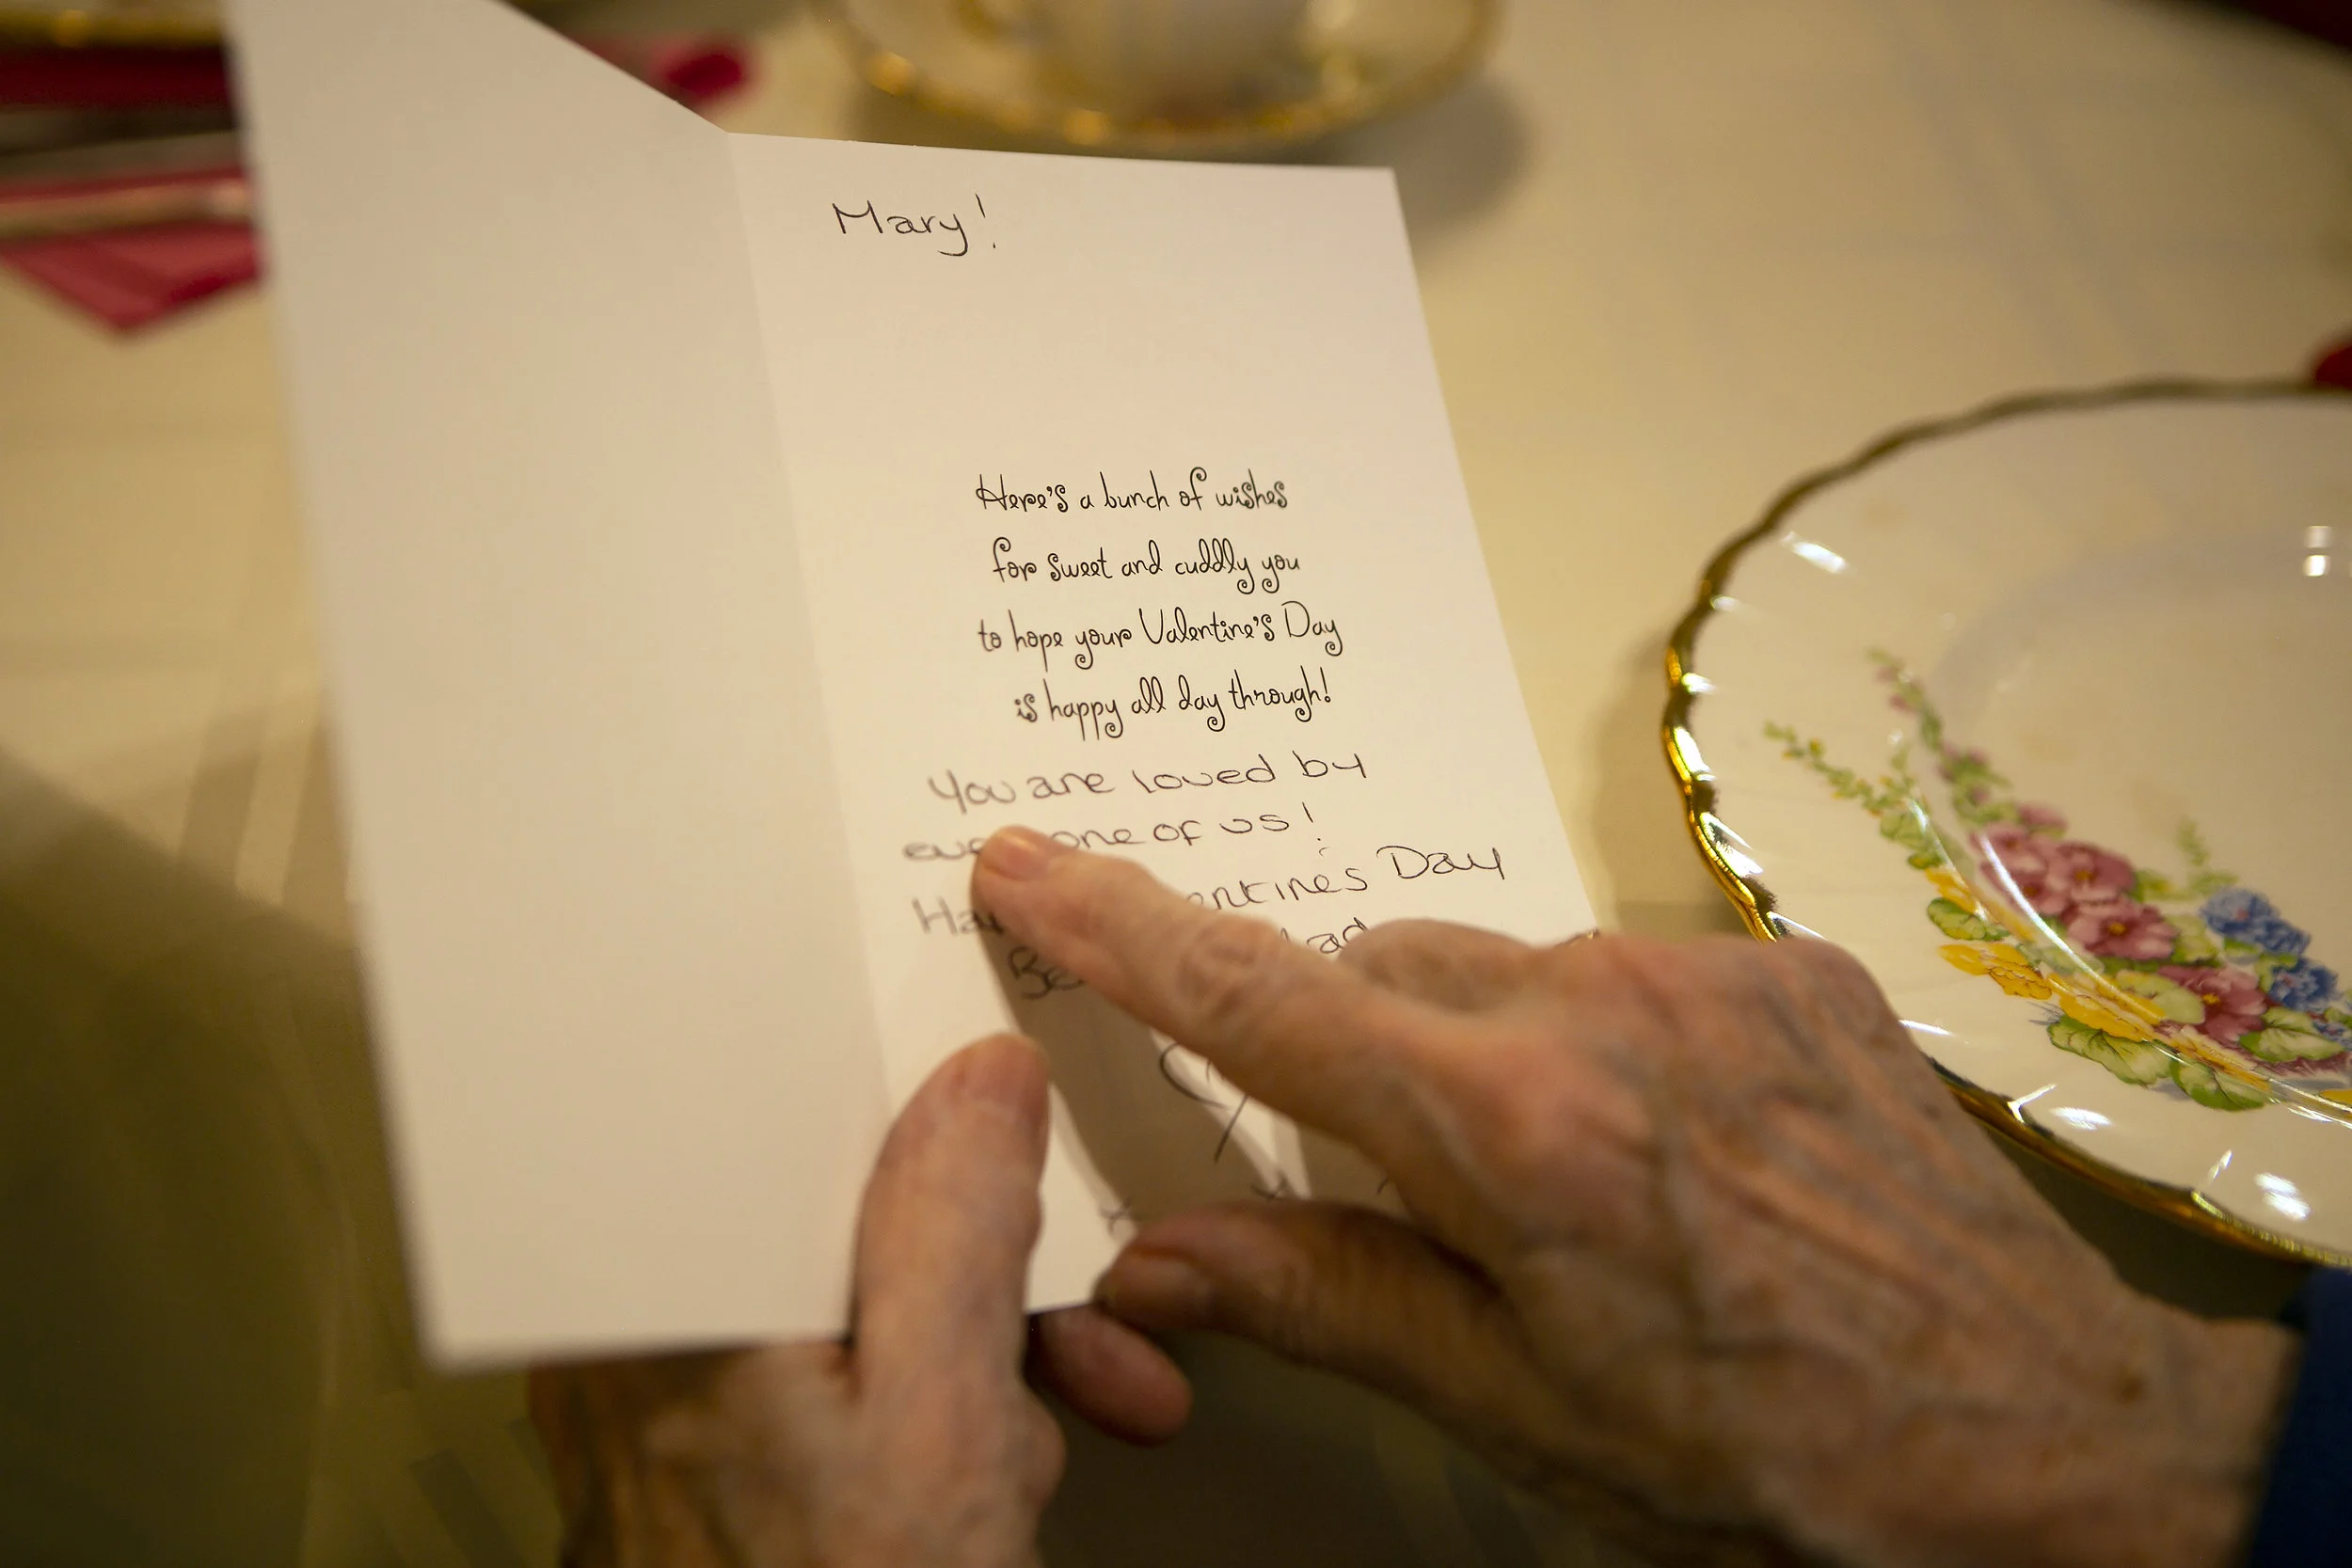 Mary!
Here's a bunch of wishes
for sweet and cuddly you
to hope your Valentine's Day
is happy all day through!
You are loved by
one of us!
Day